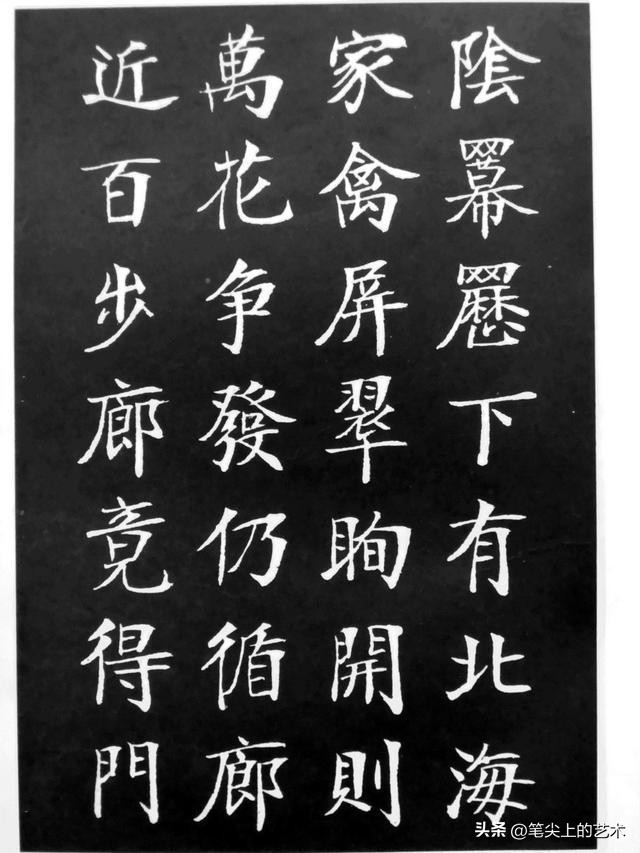 陰羃䍥下有北海
家禽屏翠眴開則
萬花争發仍循廊
近百步廊竟得門
头条 @笔尖上的艺术